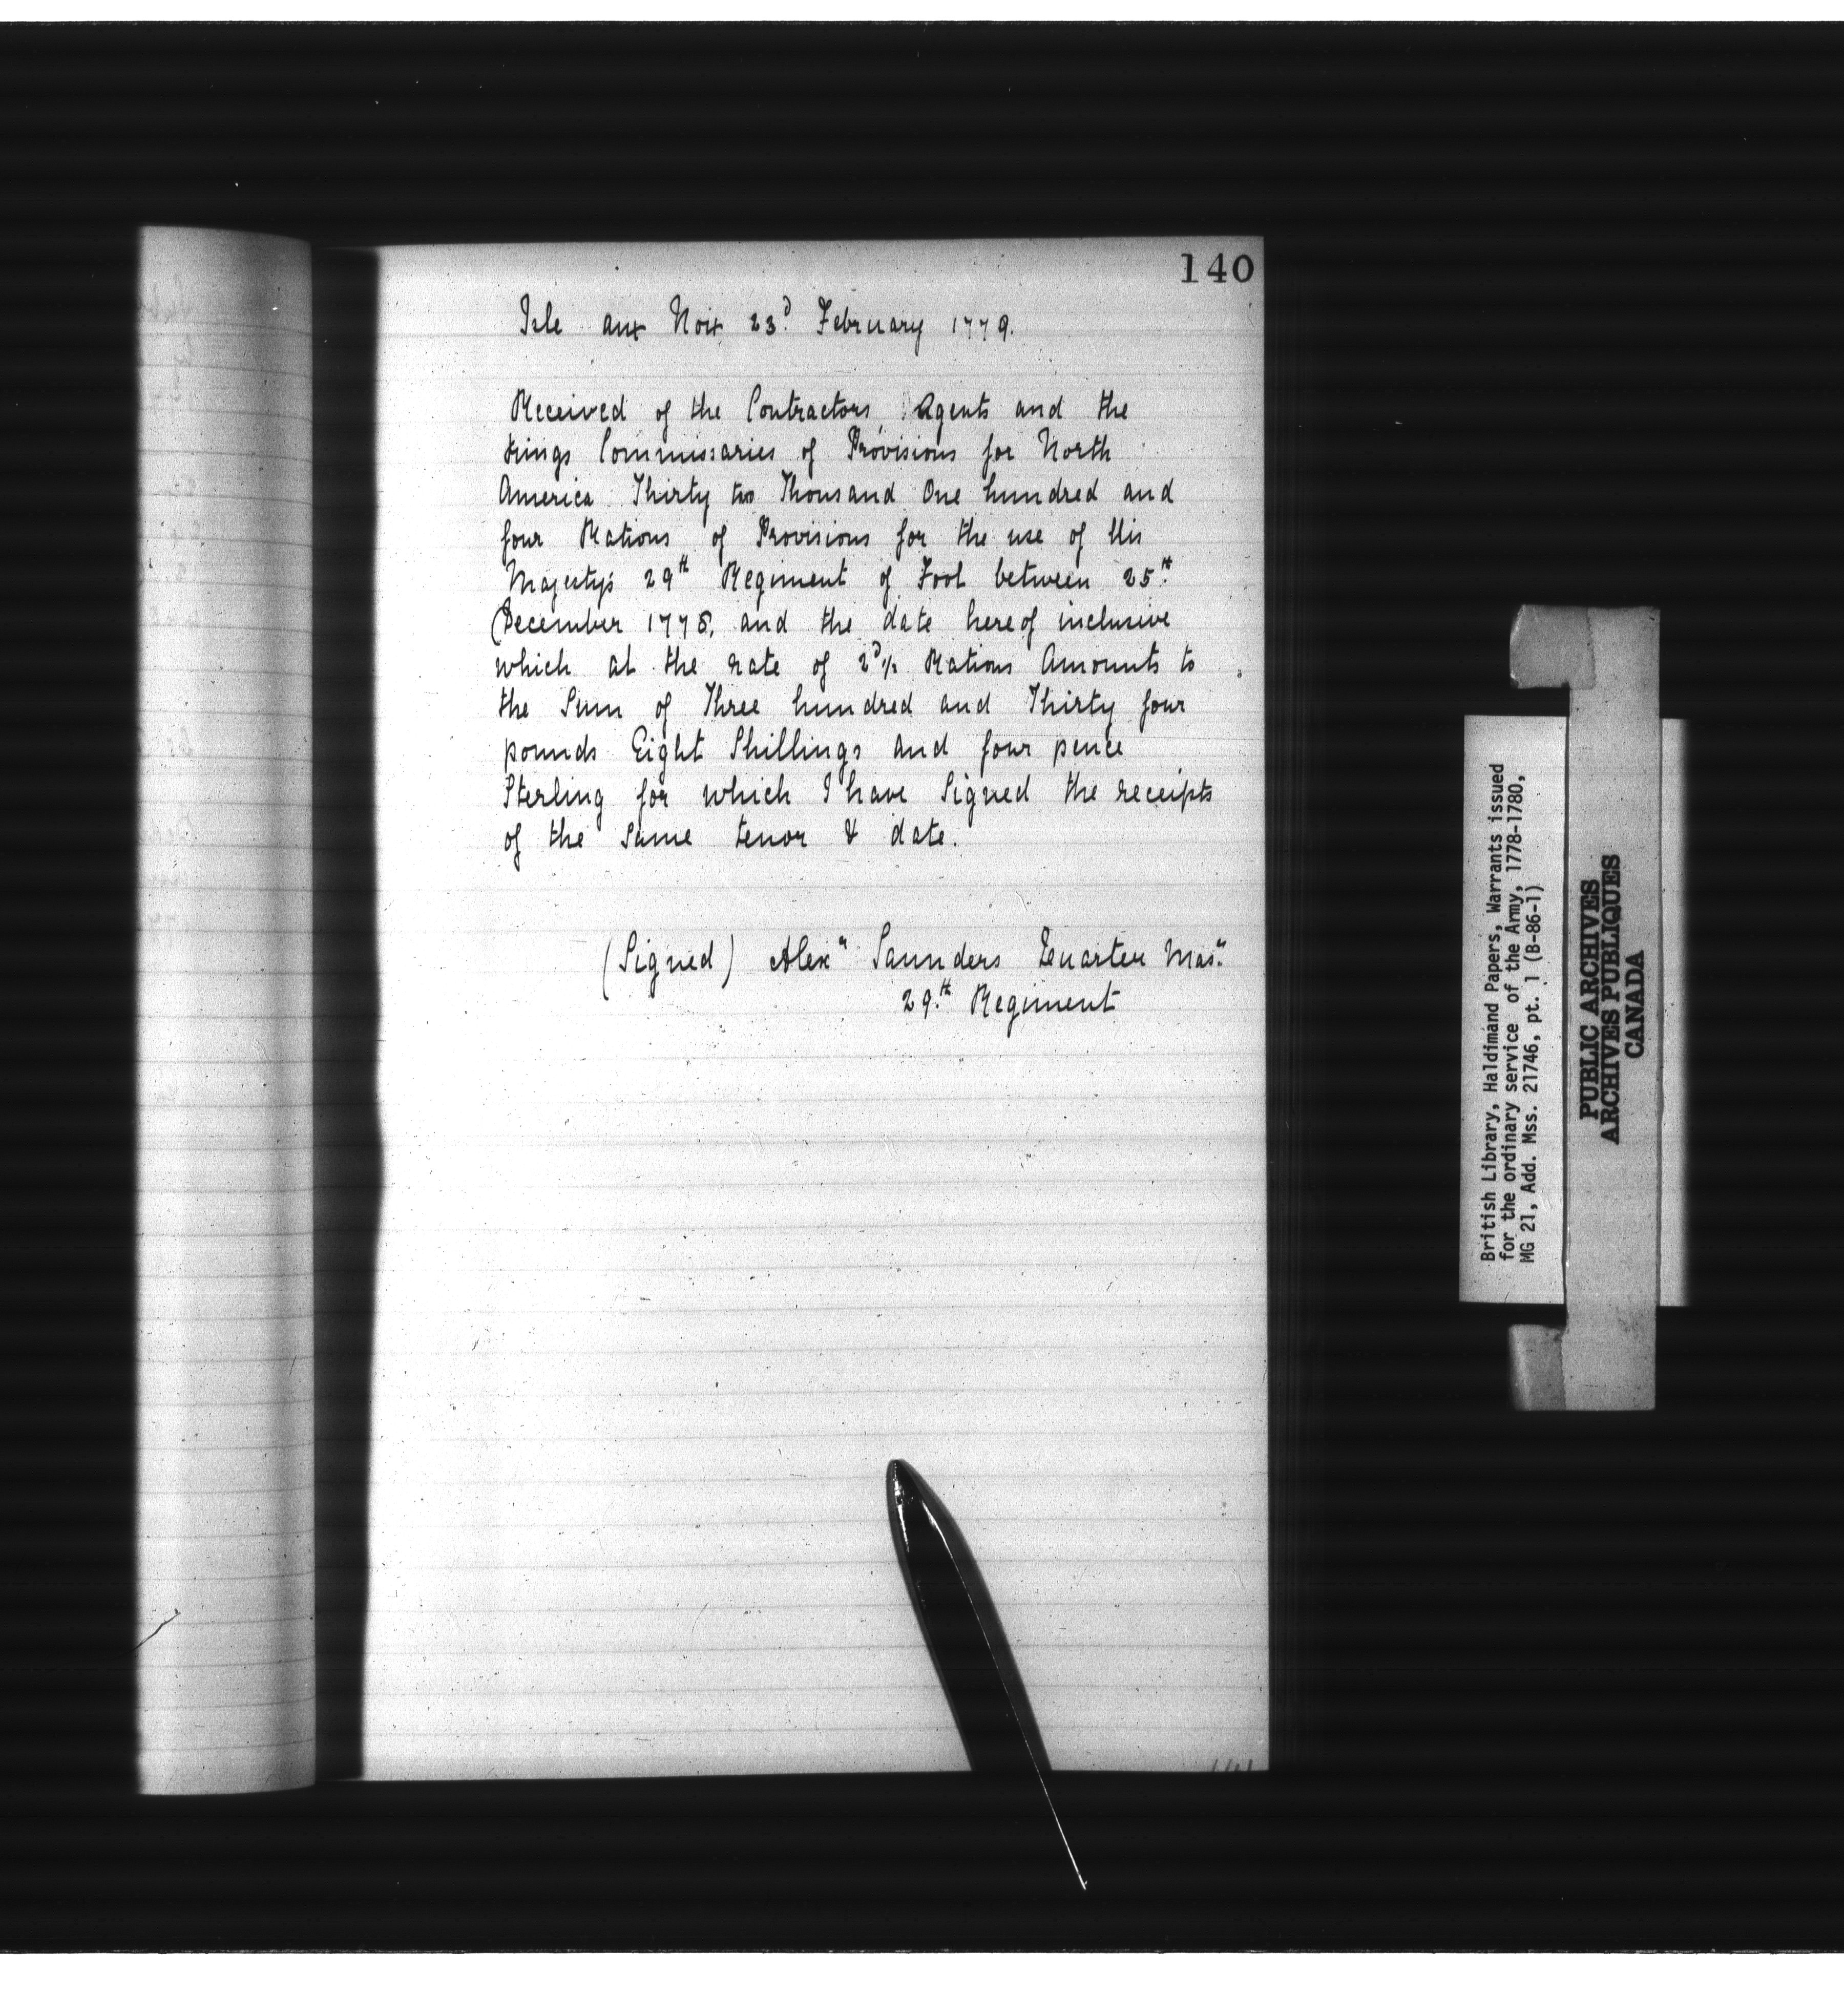 140
Isle aux Noix 23d February 1779.
Received of the Contractors Agents and the
Kings Commissaries of Provisions for North
America Thirty two Thousand One hundred and
four Rations of Provisions for the use of His
Majestys 29th Regiment of Foot between 25th
December 1778, and the date hereof inclusive
which at the rate of 2d½ Rations Amounts to
the Sum of Three hundred and Thirty four
pounds Eight Shillings and four pence
Sterling for which I have Signed the receipts
of the same tenor & date.
(Signed) Alexr Saunders Quarter Masr
29th Regiment
British Library, Haldimand Papers, Warrants issued
for the ordinary service of the Army, 1778-1780,
MG 21, Add. Mss. 21746, pt. 1 (B-86-1)
PUBLIC ARCHIVES
ARCHIVES PUBLIQUES
CANADA